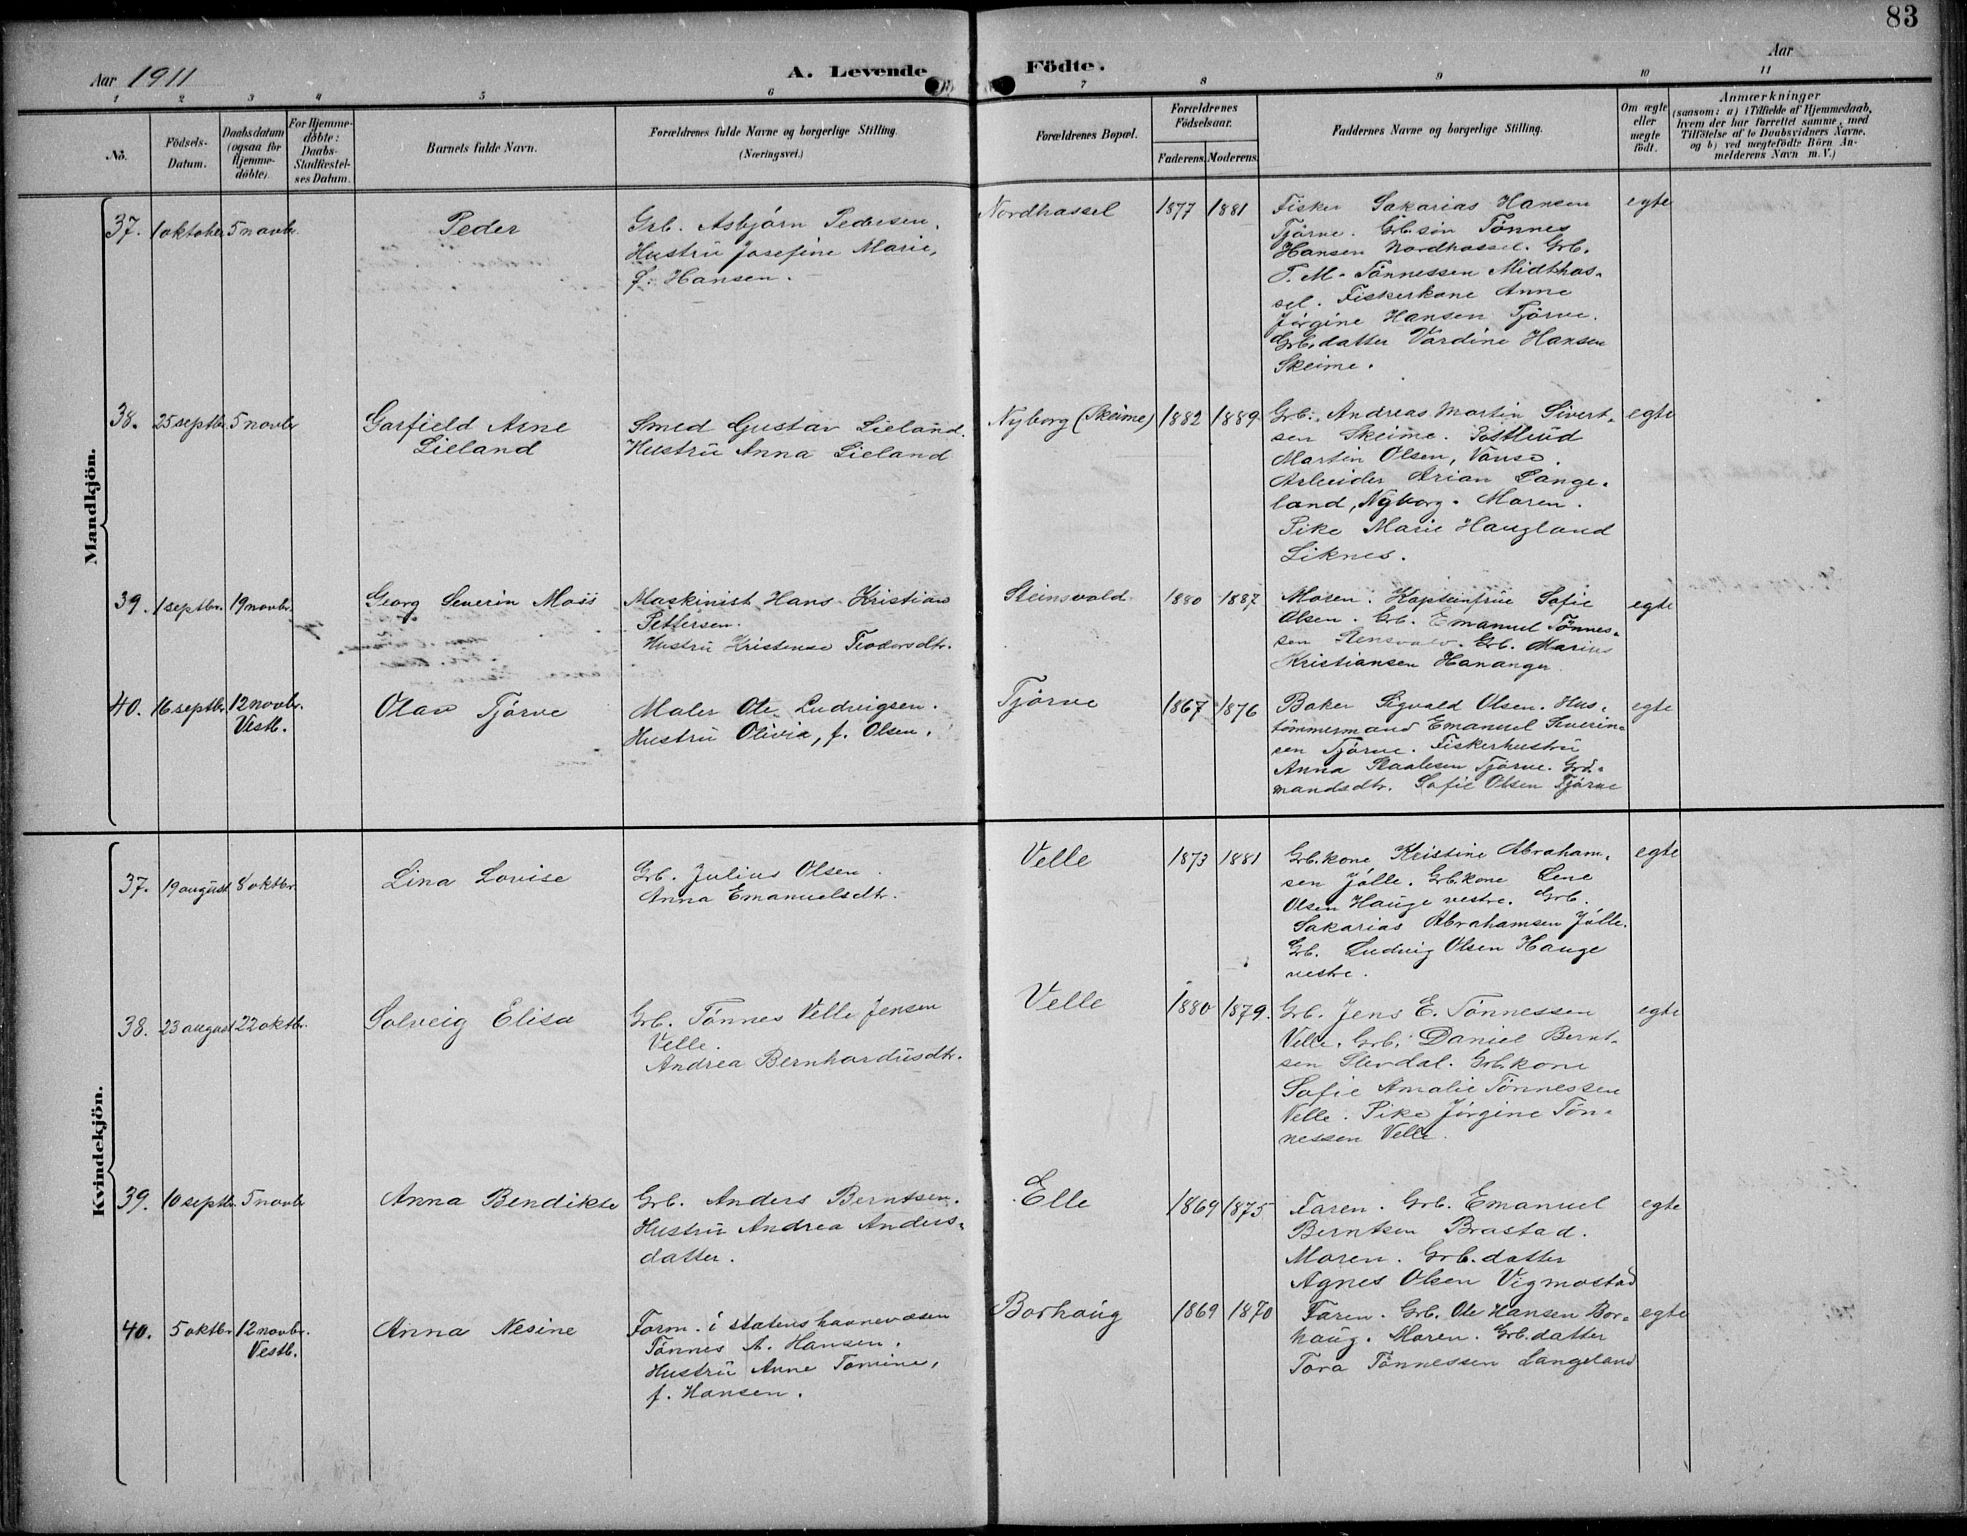 83
Aar 1911
A. Levende
Födte.
Aar
1 2 3 4 5 6 7 8 9 10 11
No.
Födsels-
Datum.
Daabsdatum
(ogsaa for
Hjemme-
döbte).
For Hjemme-
döbte:
Daabs-
Stadfæstel-
ses Datum.
Barnets fulde Navn.
Forældrenes fulde Navne og borgerlige Stilling.
(Næringsvei.)
Forældrenes Bopæl.
Forældrenes
Födselsaar.
Faderens. Moderens.
Faddernes Navne og borgerlige Stilling.
Om ægte
eller
uægte
födt.
Anmærkninger
(saasom: a) i Tilfælde af Hjemmedaab,
hvem der har forrettet samme, med
Tilföielse af to Daabsvidners Navne.
og b) ved uægtefödte Börn An-
melderens Navn m. V.)
Mandkjön.
37. 1 oktober 5 novbr. Peder
Grb. Asbjørn Pedersen.
Hustru Josefine Marie,
f. Hansen.
Nordhassel 1877 1881
Fisker Sakarias Hansen
Tjørve. Grb.søn Tønnes
Hansen Nordhassel. Grb.
T. M. Tønnessen Midthas-
sel. Fiskerkone Anne
Jørgine Hansen Tjørve.
Grb.datter Vardine Hansen
Skeime.
egte
38. 25 septbr. 5 novbr
Garfield Arne
Lieland
Smed Gustav Lieland.
Hustru Anna Lieland
Nyborg (Skeime) 1882 1889
Grb. Andreas Martin Sivert-
sen Skeime. Postbud
Martin Olsen, Vanse.
Arbeider Arian Lange-
land, Nyborg. Moren.
Pike Marie Haugland
Liknes.
egte
39. 1 septbr. 19 novbr. Georg Severin Moss
Maskinist Hans Kristian
Pettersen.
Hustru Kristense Teodorsdtr.
Steinsvold 1880 1887
Moren. Kapteinfrue Sofie
Olsen. Grb. Emanuel Tønnes-
sen Stensvold. Grb. Marius
Kristiansen Hananger
egte
40. 16 septbr. 12 novbr.
Vestb.
Olav Tjørve
Maler Ole Ludvigsen.
Hustru Olivia, f. Olsen.
Tjørve 1867 1876
Baker Sigvald Olsen. Hus-
tømmermand Emanuel Severin-
sen Tjørve. Fiskerhustru
Anna Staalesen Tjørve. Grd-
mandsdtr. Sofie Olsen Tjørve
egte
Kvindekjön.
37. 19 august 8 oktbr. Lina Lovise
Grb. Julius Olsen.
Anna Emanuelsdtr.
Velle 1873 1881
Grb.kone Kristine Abraham-
sen Jølle. Grb.kone Lene
Olsen Hauge vestre. Grb.
Sakarias Abrahamsen Jølle.
Grb. Ludvig Olsen Hauge
vestre.
egte
38. 23 august 22 oktbr. Solveig Elisa
Grb. Tønnes Velle Jensen
Velle.
Andrea Bernhardusdtr.
Velle 1880 1879.
Grb. Jens E. Tønnessen
Velle. Grb. Daniel Bernt-
sen Slevdal. Grb.kone
Sofie Amalie Tønnessen
Velle. Pike Jørgine Tøn-
nessen Velle.
egte
39. 10 septbr. 5 novbr Anna Bendikte
Grb. Anders Berntsen.
Hustru Andrea Anders-
datter.
Elle 1869 1875
Faren. Grb. Emanuel
Berntsen Brastad.
Moren. Grb.datter
Agnes Olsen Vigmostad
egte
40. 5 oktbr 12 novbr.
Vestb.
Anna Nesine
Form. i statens havnevæsen
Tønnes A. Hansen.
Hustru Anne Tomine,
f. Hansen.
Borhaug 1869 1870
Faren. Grb. Ole Hansen Bor-
haug. Moren. Grb.datter
Tora Tønnessen Langeland
egte